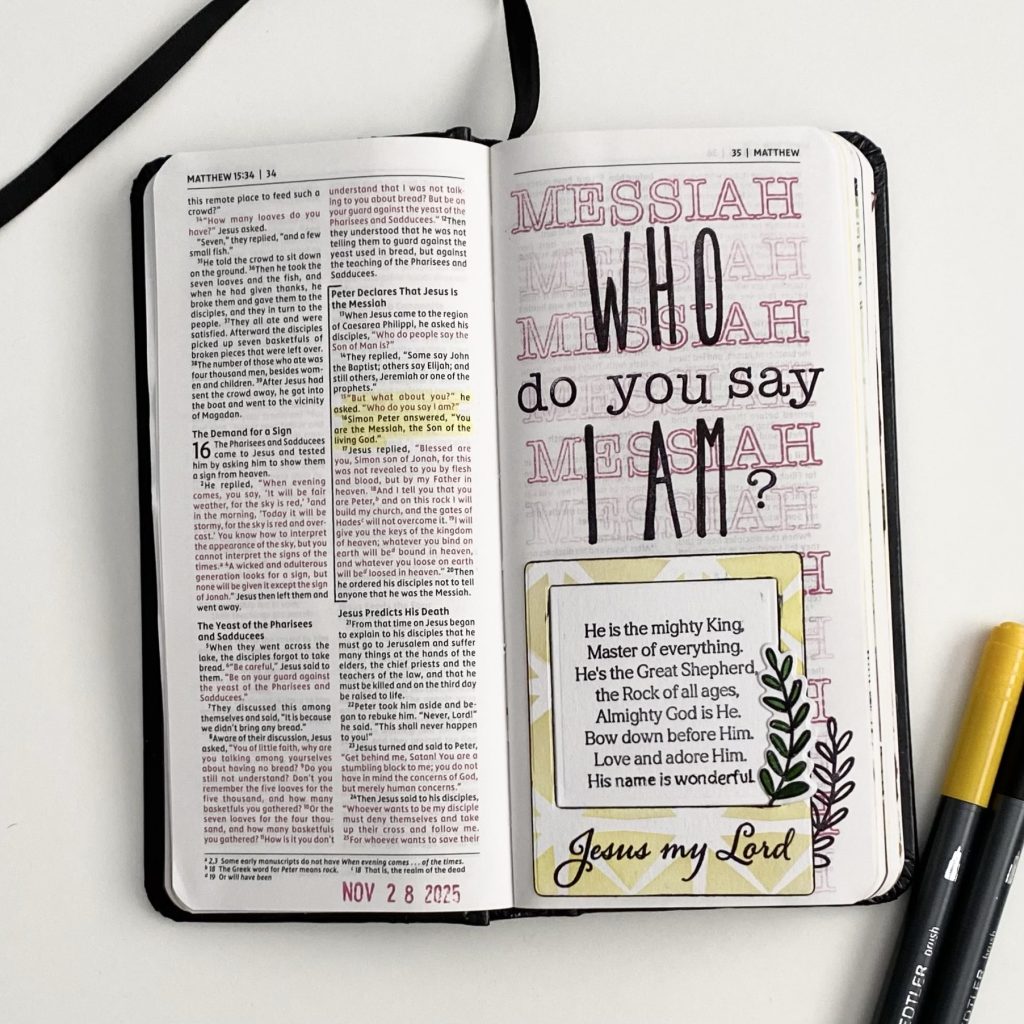 MATTHEW 15:34 | 34
this remote place to feed such a
crowd?"
34"How many loaves do you
have?" Jesus asked.
"Seven," they replied, "and a few
small fish."
35He told the crowd to sit down
on the ground. 36Then he took the
seven loaves and the fish, and
when he had given thanks, he
broke them and gave them to the
disciples, and they in turn to the
people. 37They all ate and were
satisfied. Afterward the disciples
picked up seven basketfuls of
broken pieces that were left over.
38The number of those who ate was
four thousand men, besides wom-
en and children. 39After Jesus had
sent the crowd away, he got into
the boat and went to the vicinity
of Magadan.
The Demand for a Sign
16 The Pharisees and Sadducees
came to Jesus and tested
him by asking him to show them
a sign from heaven.
2He replied, "When evening
comes, you say, 'It will be fair
weather, for the sky is red,' 3and
in the morning, 'Today it will be
stormy, for the sky is red and over-
cast.' You know how to interpret
the appearance of the sky, but you
cannot interpret the signs of the
times.a 4A wicked and adulterous
generation looks for a sign, but
none will be given it except the sign
of Jonah." Jesus then left them and
went away.
The Yeast of the Pharisees
and Sadducees
5When they went across the
lake, the disciples forgot to take
bread. 6"Be careful," Jesus said to
them. "Be on your guard against
the yeast of the Pharisees and
Sadducees."
7They discussed this among
themselves and said, "It is because
we didn't bring any bread."
8Aware of their discussion, Jesus
asked, "You of little faith, why are
you talking among yourselves
about having no bread? 9Do you
still not understand? Don't you
remember the five loaves for the
five thousand, and how many
basketfuls you gathered? 10Or the
seven loaves for the four thou-
sand, and how many basketfuls
you gathered? 11How is it you don't
understand that I was not talk-
ing to you about bread? But be on
your guard against the yeast of the
Pharisees and Sadducees." 12Then
they understood that he was not
telling them to guard against the
yeast used in bread, but against
the teaching of the Pharisees and
Sadducees.
Peter Declares That Jesus Is
the Messiah
13When Jesus came to the region
of Caesarea Philippi, he asked his
disciples, "Who do people say the
Son of Man is?"
14They replied, "Some say John
the Baptist; others say Elijah; and
still others, Jeremiah or one of the
prophets."
15"But what about you?" he
asked. "Who do you say I am?"
16Simon Peter answered, "You
are the Messiah, the Son of the
living God."
17Jesus replied, "Blessed are
you, Simon son of Jonah, for this
was not revealed to you by flesh
and blood, but by my Father in
heaven. 18And I tell you that you
are Peter,b and on this rock I will
build my church, and the gates of
Hadesc will not overcome it. 19I will
give you the keys of the kingdom
of heaven; whatever you bind on
earth will bed bound in heaven,
and whatever you loose on earth
will bed loosed in heaven." 20Then
he ordered his disciples not to tell
anyone that he was the Messiah.
Jesus Predicts His Death
21From that time on Jesus began
to explain to his disciples that he
must go to Jerusalem and suffer
many things at the hands of the
elders, the chief priests and the
teachers of the law, and that he
must be killed and on the third day
be raised to life.
22Peter took him aside and be-
gan to rebuke him. "Never, Lord!"
he said. "This shall never happen
to you!"
23Jesus turned and said to Peter,
"Get behind me, Satan! You are a
stumbling block to me; you do not
have in mind the concerns of God,
but merely human concerns."
24Then Jesus said to his disciples,
"Whoever wants to be my disciple
must deny themselves and take
up their cross and follow me.
25For whoever wants to save their
a 2,3 Some early manuscripts do not have When evening comes . . . of the times.
b 18 The Greek word for Peter means rock. c 18 That is, the realm of the dead
d 19 Or will have been
NOV 28 2025
35 | MATTHEW
MESSIAH
MESSIAH
WHO
MESSIAH
do you say
MESSIAH
I AM?
MESSIAH
He is the mighty King,
Master of everything.
He's the Great Shepherd,
the Rock of all ages,
Almighty God is He.
Bow down before Him.
Love and adore Him.
His name is wonderful
Jesus my Lord
brush
brush